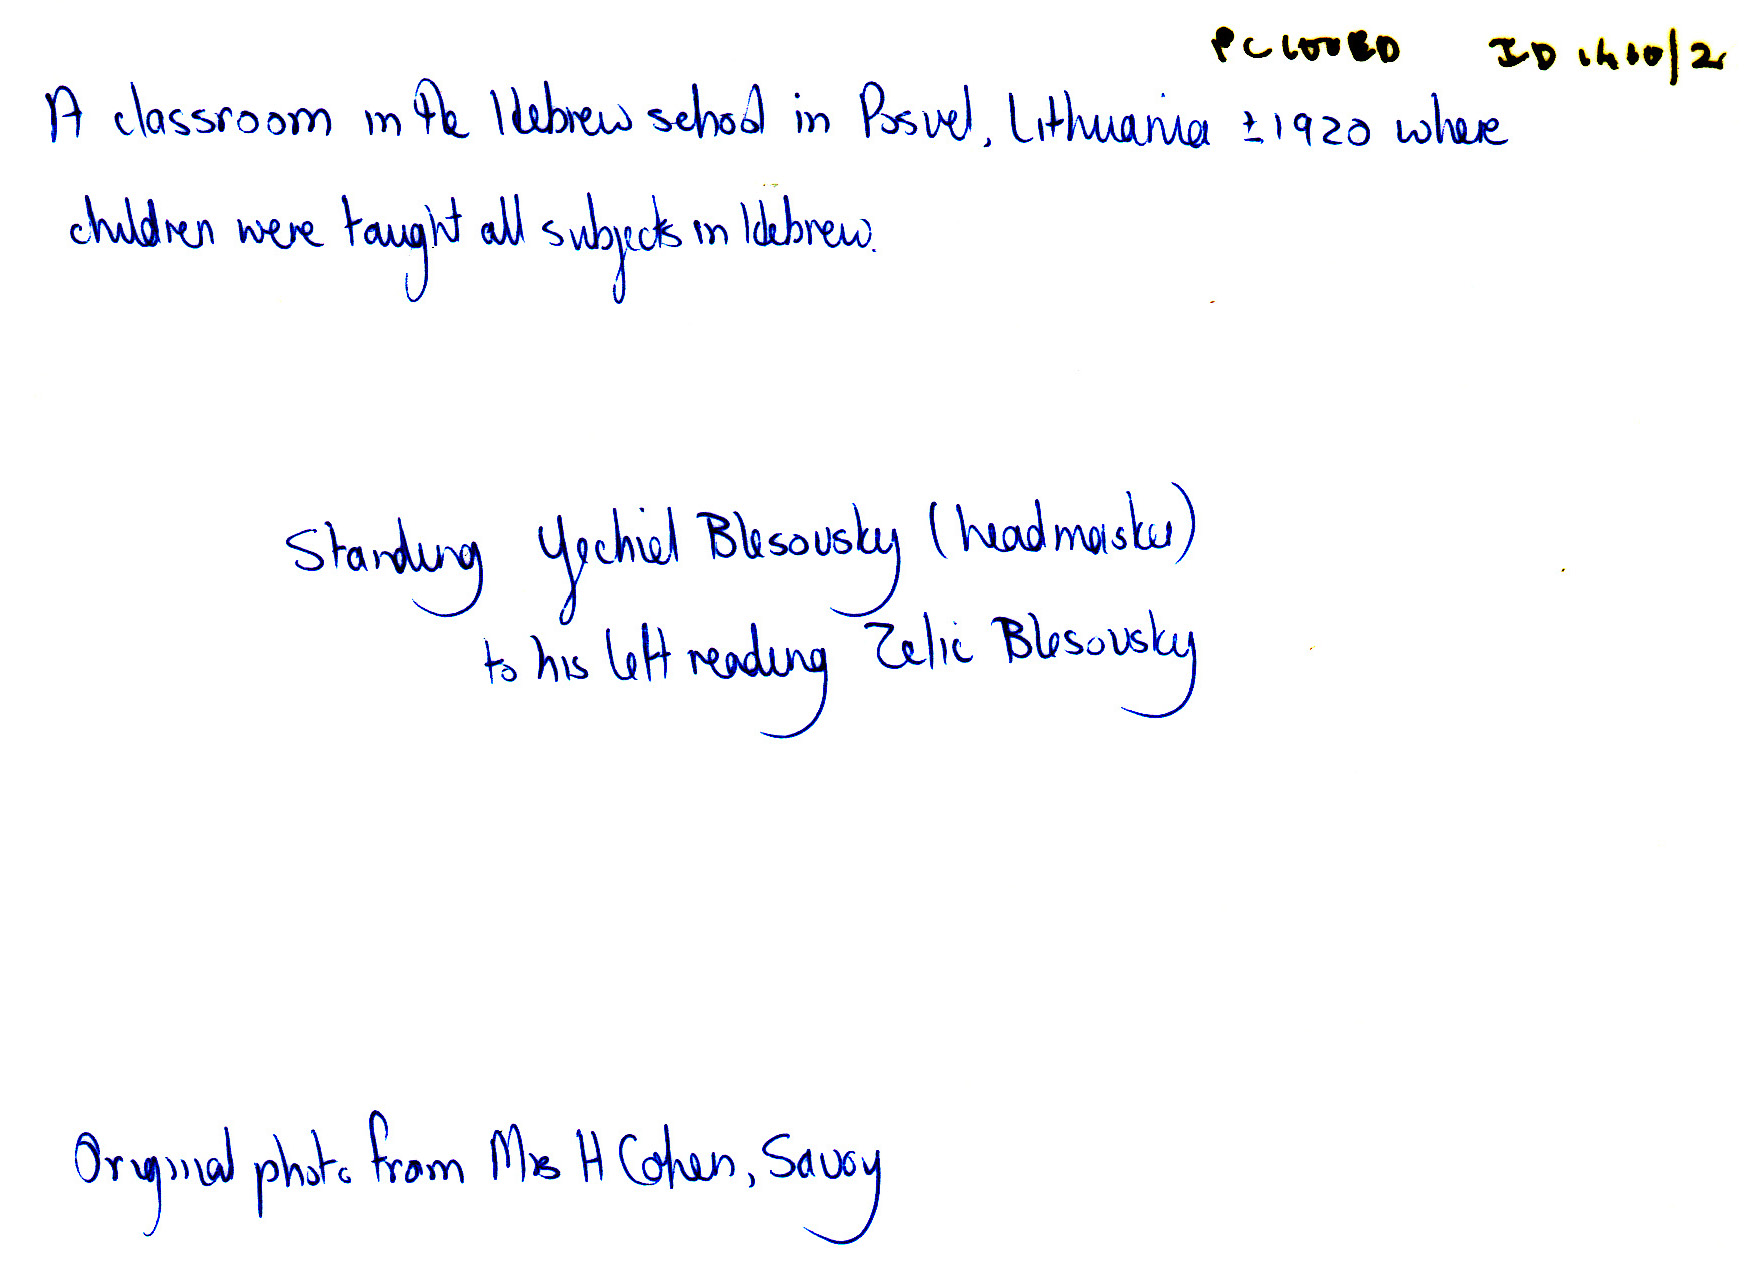 ID 1410/2
A classroom in the Hebrew school in Posvel, Lithuania ± 1920 where
children were taught all subjects in Hebrew.
Standing Yechiel Blesovsky (headmaster)
to his left reading Zelic Blesovsky
Original photo from Mrs H Cohen, Savoy